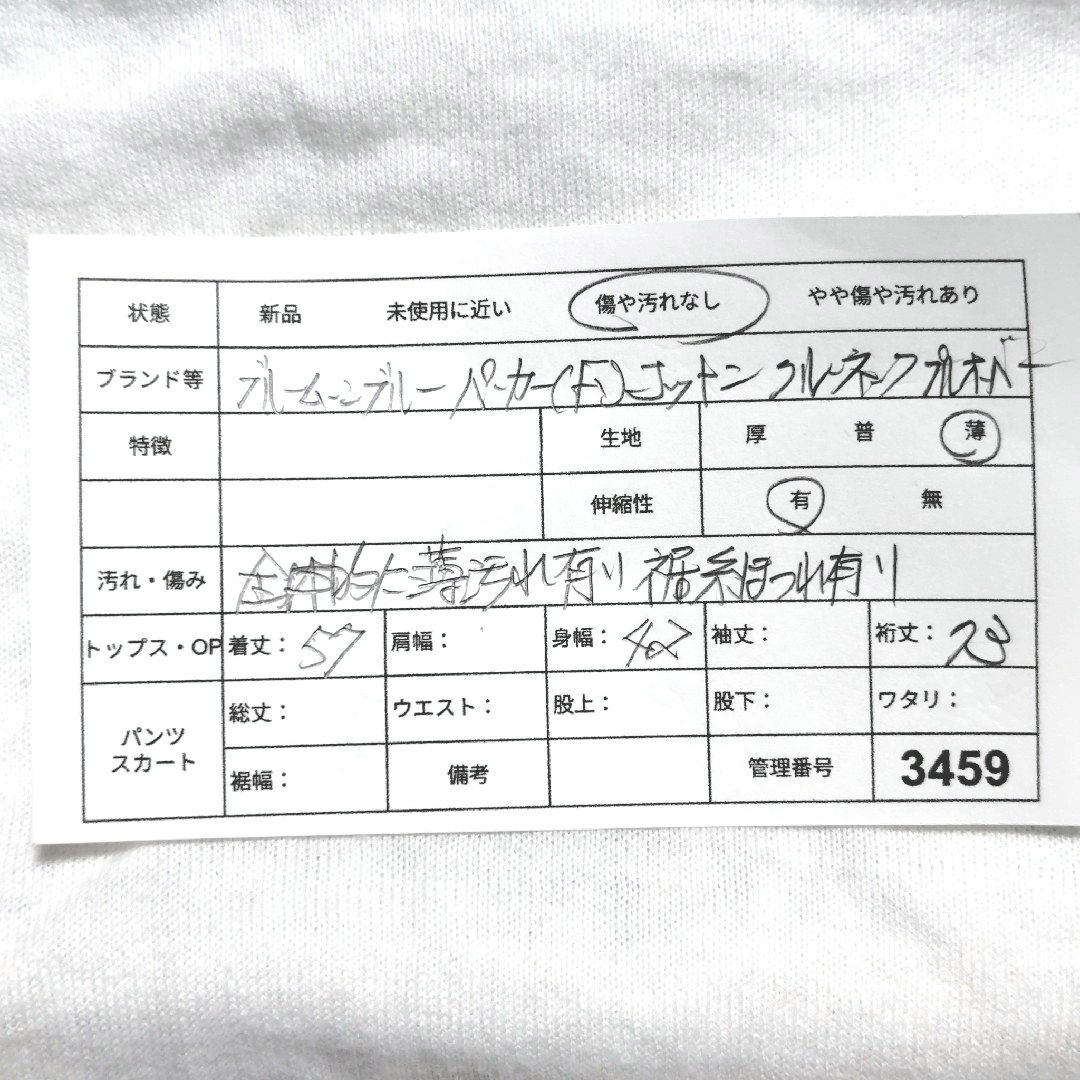 状態 新品 未使用に近い 傷や汚れなし やや傷や汚れあり
ブランド等 ブルームーンブルー パーカー(F) コットン クルーネックプルオーバー
特徴 生地 厚 普 薄
伸縮性 有 無
汚れ・傷み 全体的に薄汚れ有り 裾糸ほつれ有り
トップス・OP 着丈： 57 肩幅： 身幅： 袖丈： 裄丈： 73
パンツ スカート 総丈： ウエスト： 股上： 股下： ワタリ：
裾幅： 備考 管理番号 3459